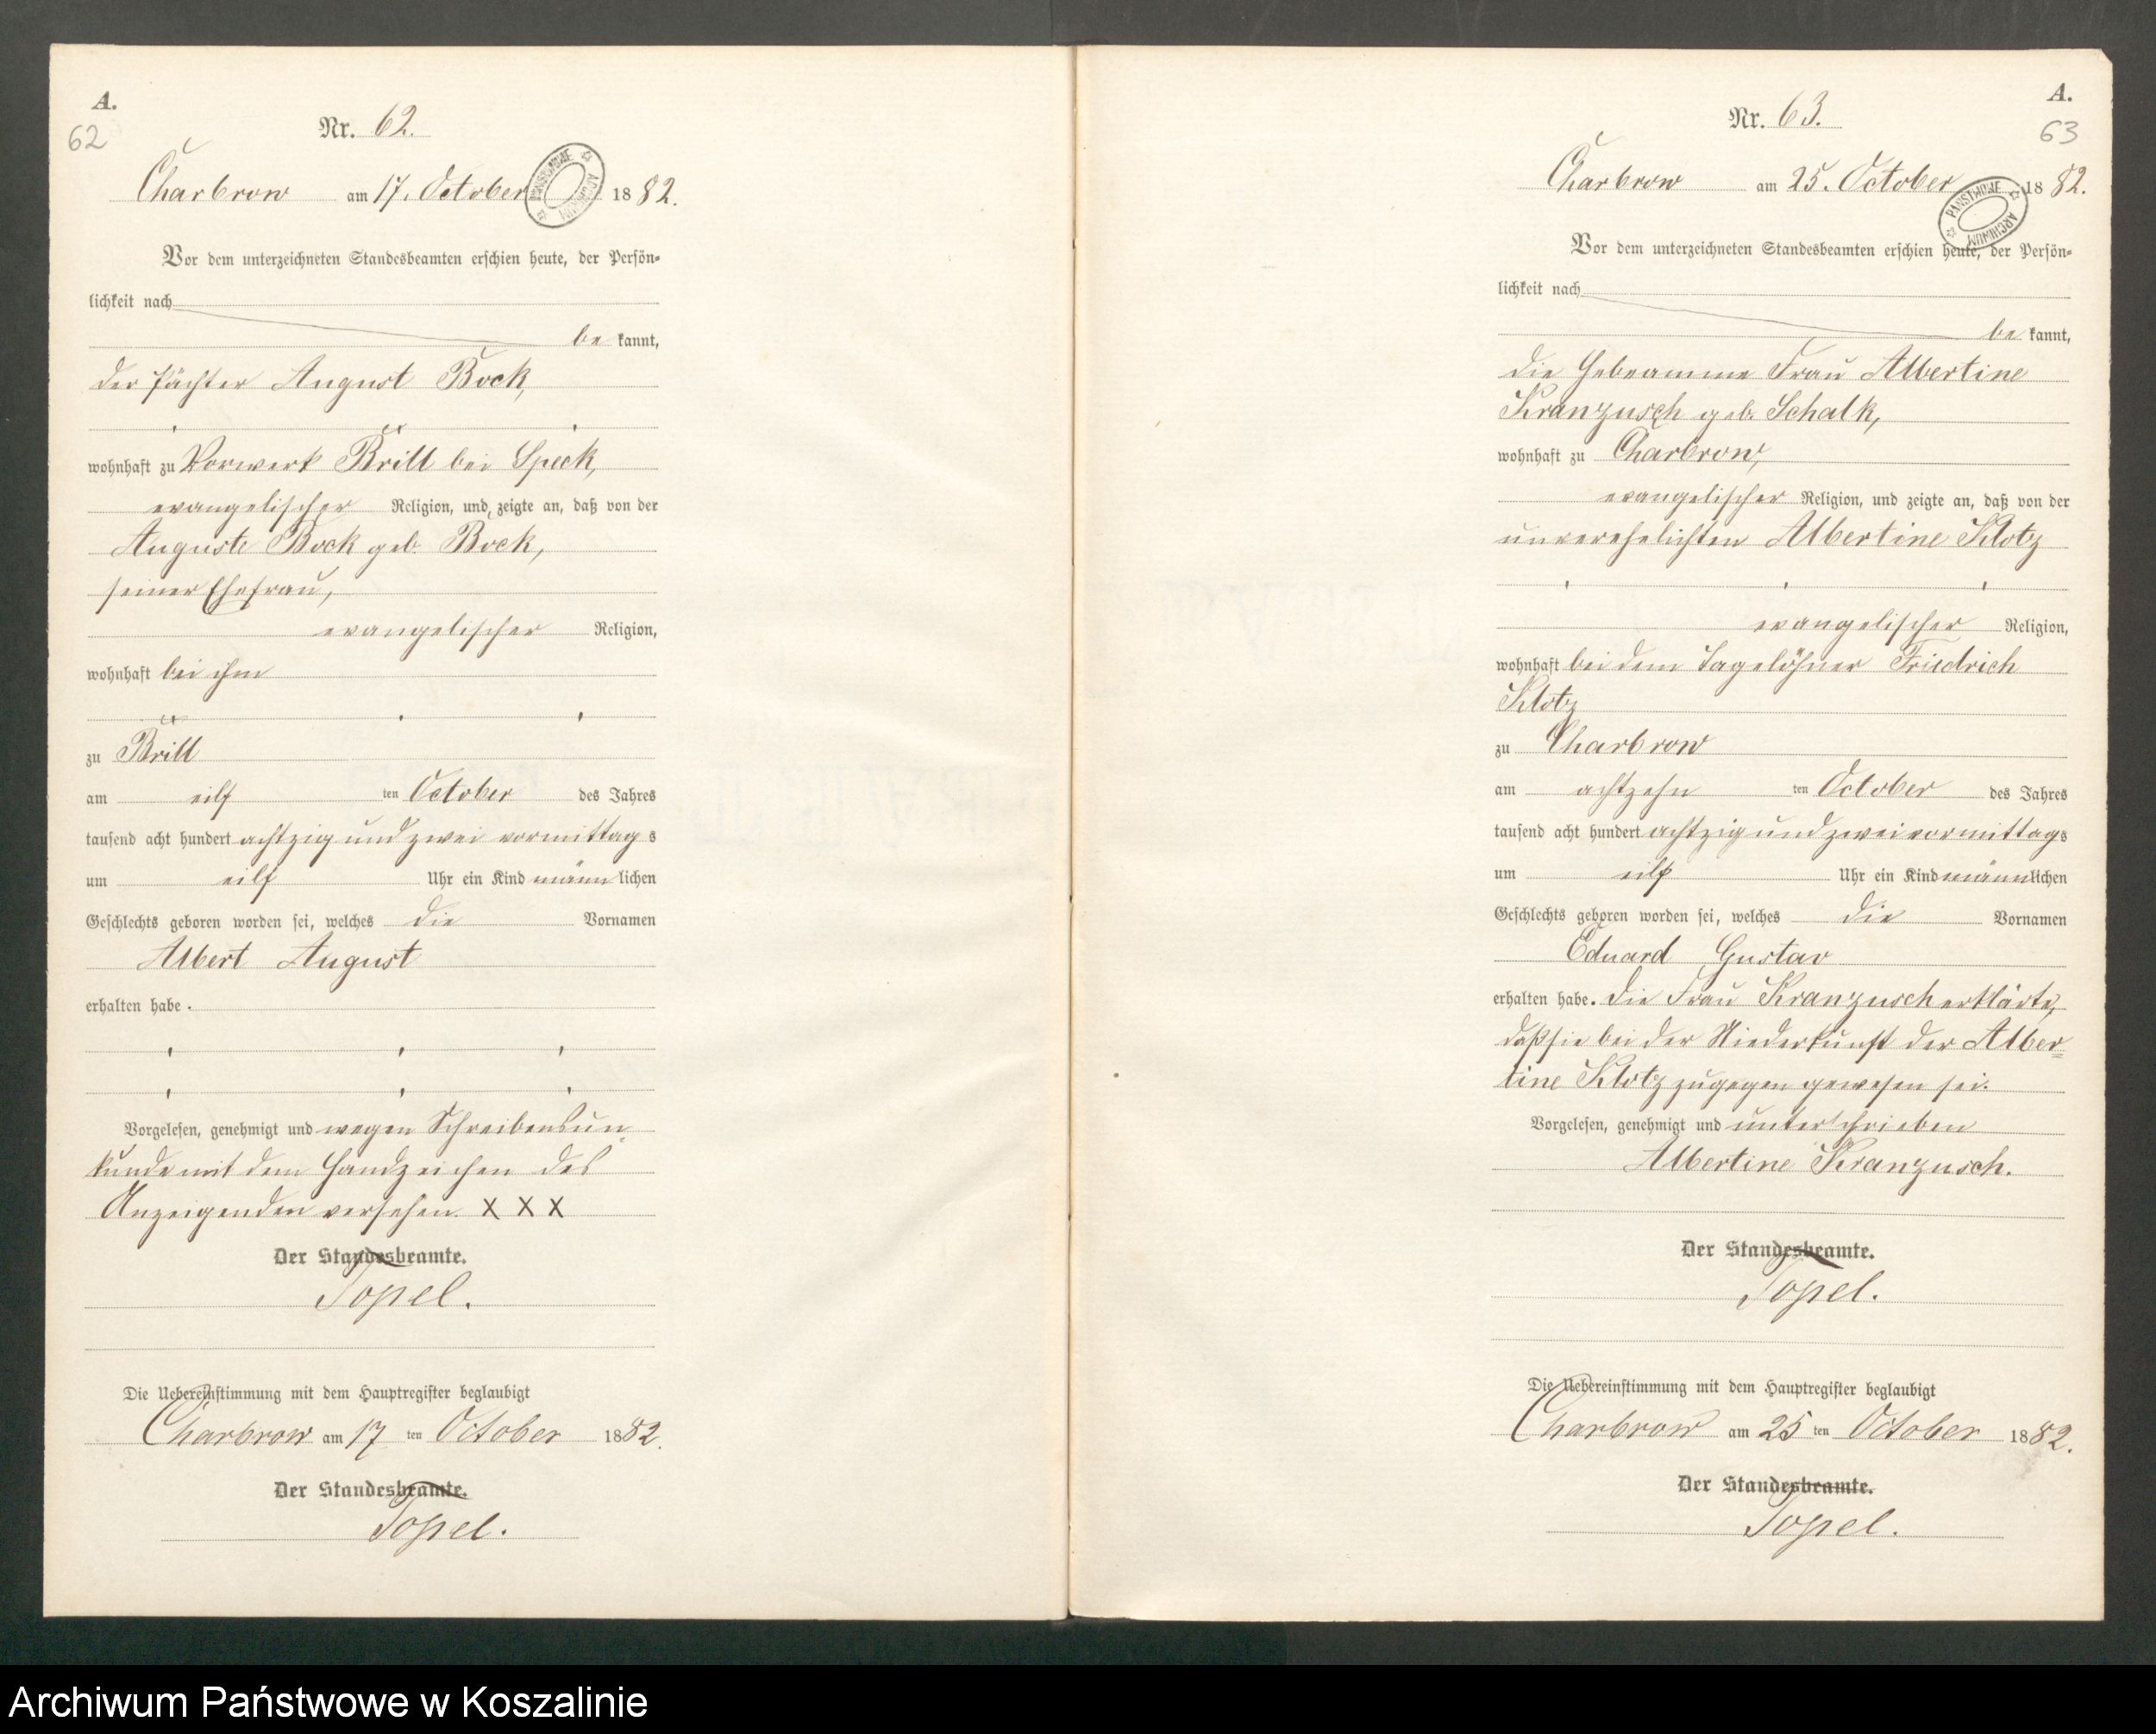 A.
62
Nr. 62.
Charbrow am 17. October 1882.
PAŃSTWOWE ARCHIWUM
Vor dem unterzeichneten Standesbeamten erschien heute, der Persön-
lichkeit nach
be kannt,
der Pächter August Bock,
wohnhaft zu Vorwerk Brill bei Speck,
evangelischer Religion, und zeigte an, daß von der
Auguste Bock geb. Bock,
seiner Ehefrau,
evangelischer Religion,
wohnhaft bei ihm
zu Brill
am eilf ten October des Jahres
tausend acht hundert achtzig und zwei vormittags
um eilf Uhr ein Kind männlichen
Geschlechts geboren worden sei, welches die Vornamen
Albert August
erhalten habe.
Vorgelesen, genehmigt und wegen Schreibensun
kunde mit dem Handzeichen des
Anzeigenden versehen. X X X
Der Standesbeamte.
Topel.
Die Uebereinstimmung mit dem Hauptregister beglaubigt
Charbrow am 17 ten October 1882.
Der Standesbeamte.
Topel.
A.
63
Nr. 63.
Charbrow am 25. October 1882.
PAŃSTWOWE ARCHIWUM
Vor dem unterzeichneten Standesbeamten erschien heute, der Persön-
lichkeit nach
be kannt,
die Hebeamme Frau Albertine
Kranzusch geb. Schalk,
wohnhaft zu Charbrow,
evangelischer Religion, und zeigte an, daß von der
unverehelichten Albertine Klotz
evangelischer Religion,
wohnhaft bei dem Tagelöhner Friedrich
Klotz
zu Charbrow
am achtzehn ten October des Jahres
tausend acht hundert achtzig und zwei vormittags
um eilf Uhr ein Kind männlichen
Geschlechts geboren worden sei, welches die Vornamen
Eduard Gustav
erhalten habe. Die Frau Kranzusch erklärte,
daß sie bei der Niederkunft der Alber=
tine Klotz zugegen gewesen sei.
Vorgelesen, genehmigt und unterschrieben
Albertine Kranzusch.
Der Standesbeamte.
Topel.
Die Uebereinstimmung mit dem Hauptregister beglaubigt
Charbrow am 25 ten October 1882.
Der Standesbeamte.
Topel.
Archiwum Państwowe w Koszalinie